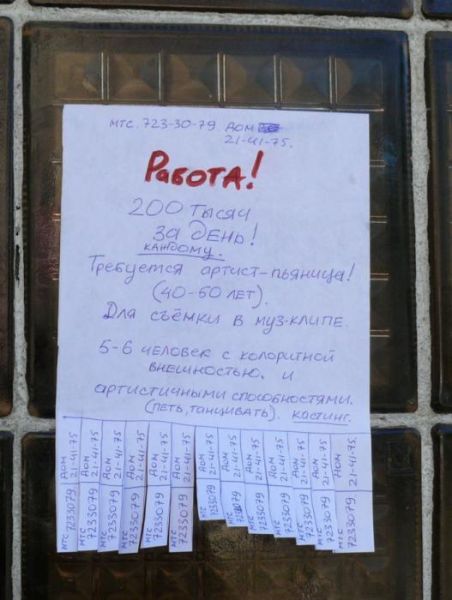 мтс. 723-30-79. дом
21-41-75.
РАБОТА!
200 тысяч
за день!
каждому.
Требуется артист-пьяница!
(40-60 лет).
Для съёмки в муз-клипе.
5-6 человек с колоритной
внешностью. и
артистичными способностями.
(петь, танцивать). кастинг.
мтс 7233079 дом 21-41-75
мтс 7233079 дом 21-41-75
мтс 7233079 дом 21-41-75
мтс 7233079 дом 21-41-75
мтс 7233079 дом 21-41-75
мтс 7233079 дом 21-41-75
мтс 7233079 дом 21-41-75
мтс 7233079 дом 21-41-75
мтс 7233079 дом 21-41-75
мтс 7233079 дом 21-41-75
мтс 7233079 дом 21-41-75
мтс 7233079 дом 21-41-75
мтс 7233079 дом 21-41-75